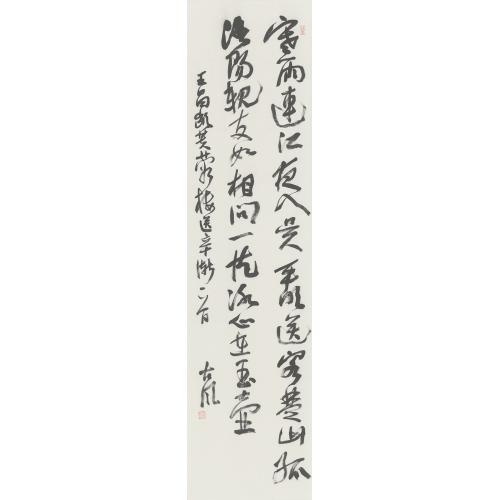 寒雨連江夜入吴平明送客楚山孤
洛陽親友如相問一片冰心在玉壶
王昌龄芙蓉楼送辛渐一首
古風